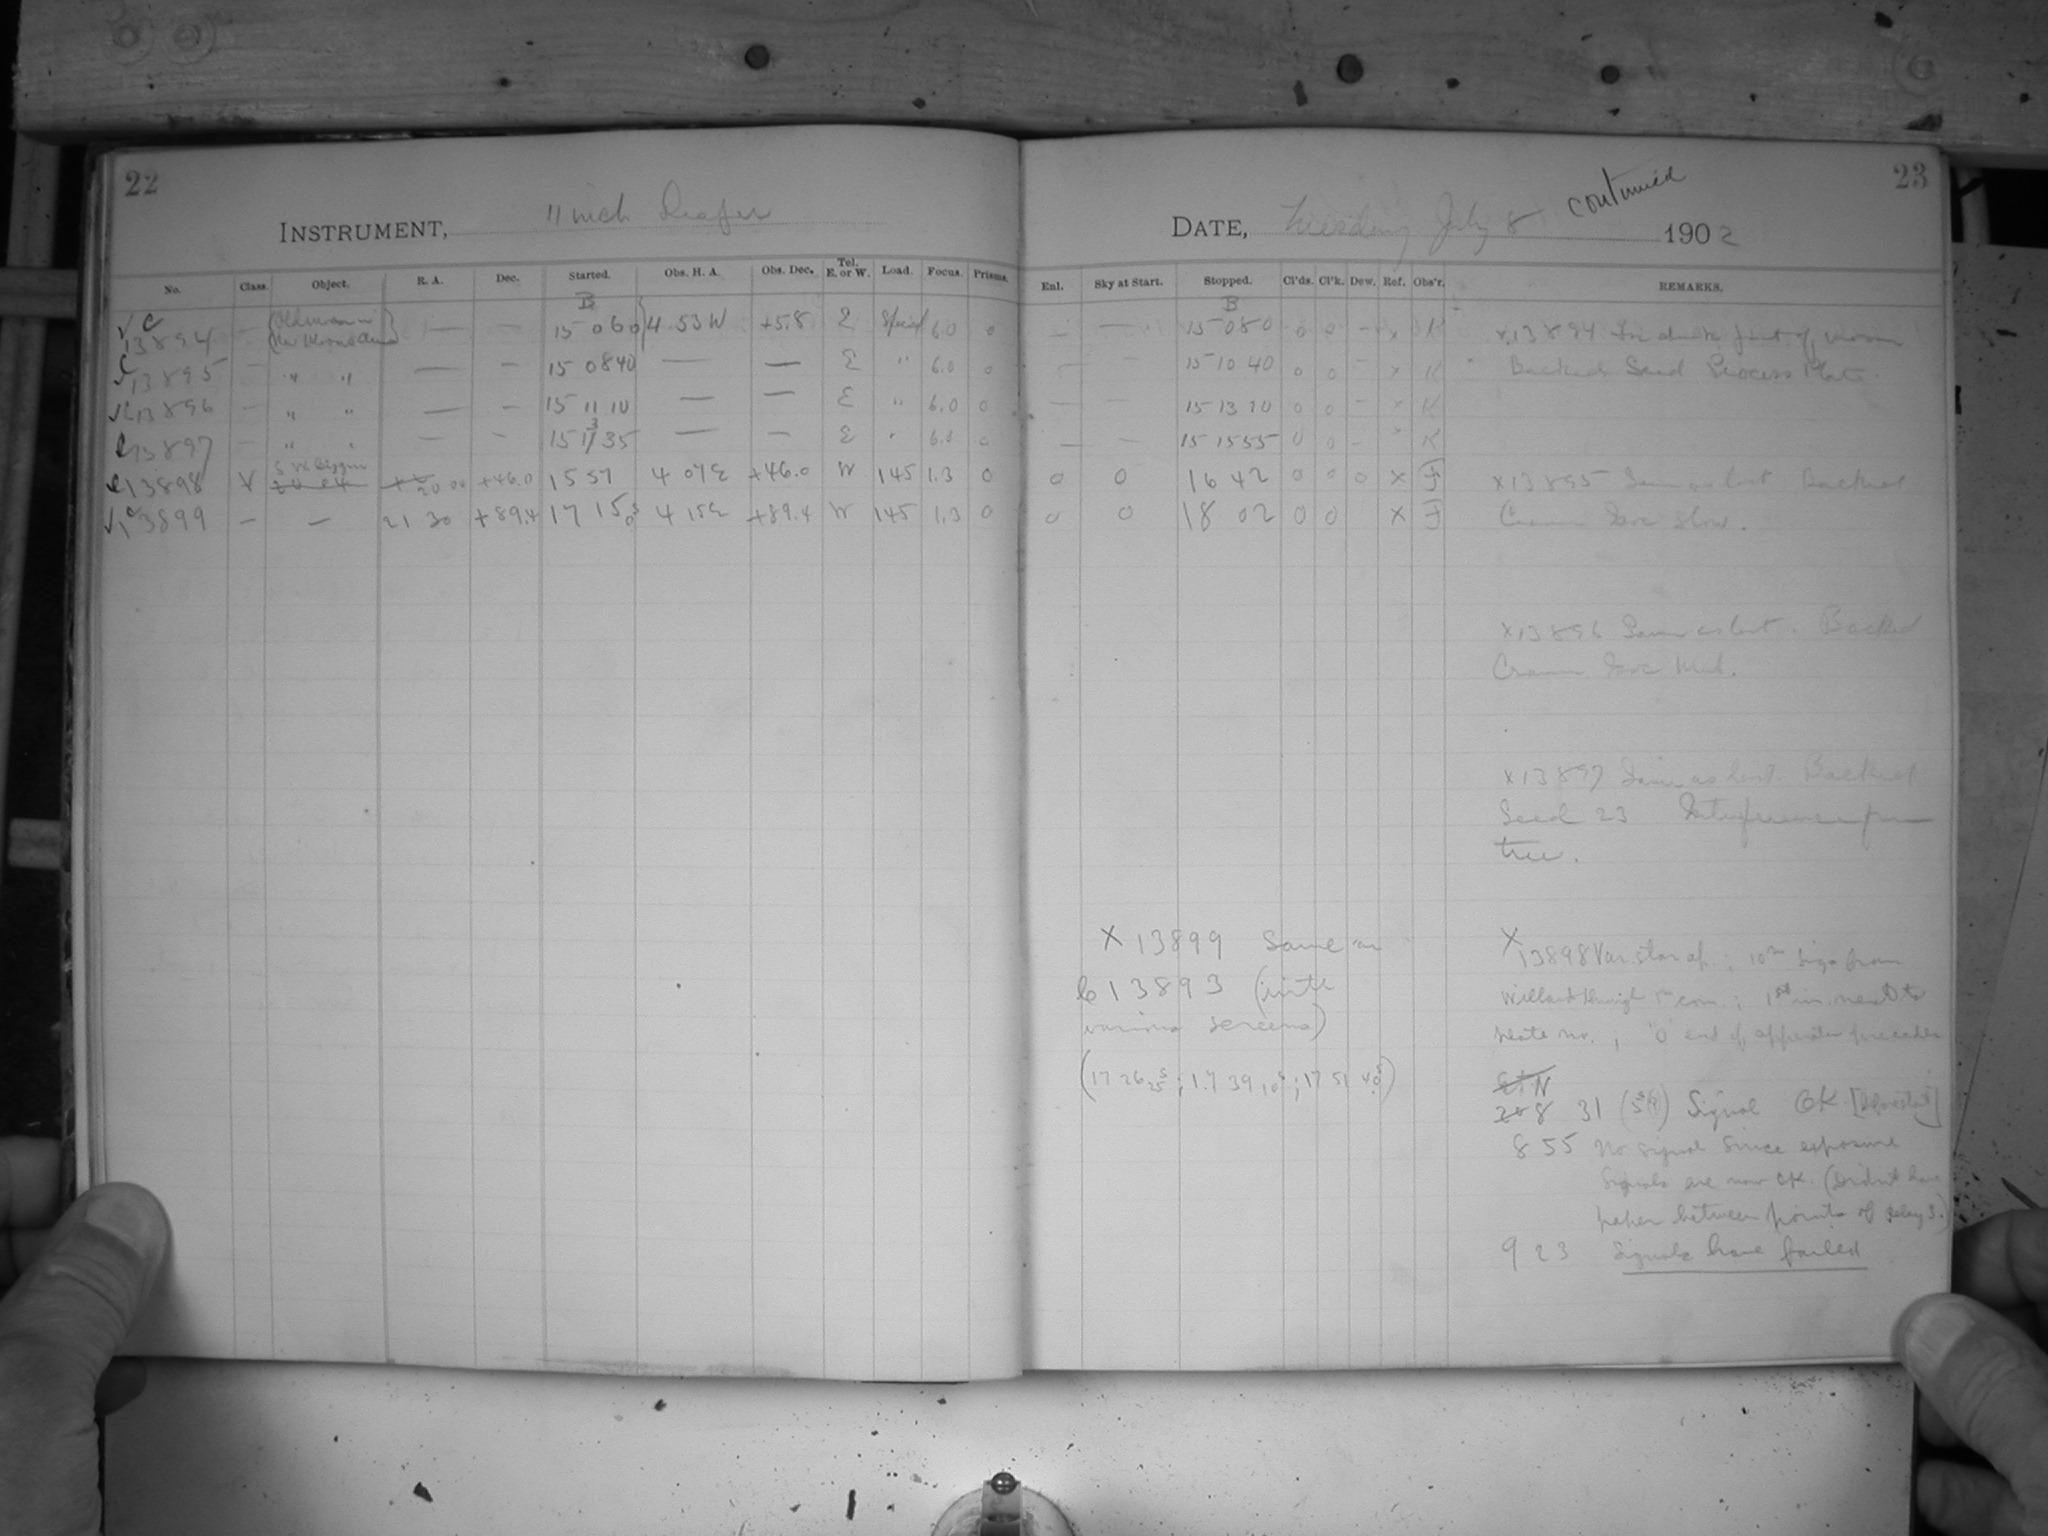 22
INSTRUMENT, 11 inch Draper
No. Class. Object. R. A. Dec. Started. Obs. H. A. Obs. Dec. Tel. E. or W. Load. Focus. Prisms.
B
C 13894 — Old Moon in New Moon's Arms — — 15 06 0 4 53 W +5.8 E Special 6.0 0
C 13895 — " " — — 15 08 40 — — E " 6.0 0
C 13896 — " " — — 15 11 10 — — E " 6.0 0
C 13897 — " " — — 15 13 35 — — E " 6.0 0
C 13898 V 20 00 +46.0 15 57 4 07 E +46.0 W 145 1.3 0
C 13899 — — 21 30 +89.4 17 15 4 15 E +89.4 W 145 1.3 0
23
DATE, Tuesday July 8 continued 1902
Enl. Sky at Start. Stopped. Cl'ds. Cl'k. Dew. Ref. Obs'r. REMARKS.
B
— — 15 08 0 0 0 — x K
— — 15 10 40 0 0 — x K
— — 15 13 10 0 0 — x K
— — 15 15 55 0 0 — x K
0 0 16 42 0 0 0 x F
0 0 18 02 0 0 x F
x 13894 In dark part of moon
Backed Seed Process Plate.
x 13895 Same as last Backed
Cramer Iso Slow.
x 13896 Same as last. Backed
Cramer Iso Med.
x 13897 Same as last. Backed
Seed 23 Interference from
tree.
X 13899 Same as
C 13893 (with
various screens)
(17 26 25s; 17 39 10s; 17 51 40s)
X 13898 Var. star
Willard through com.; 1st in. next to
plate no.; "0" end of precedes
8 31 Signal OK
8 55 No signal since exposure
Signals are now OK. (Didn't have
paper between points of relay 3.)
9 23 Signals have failed